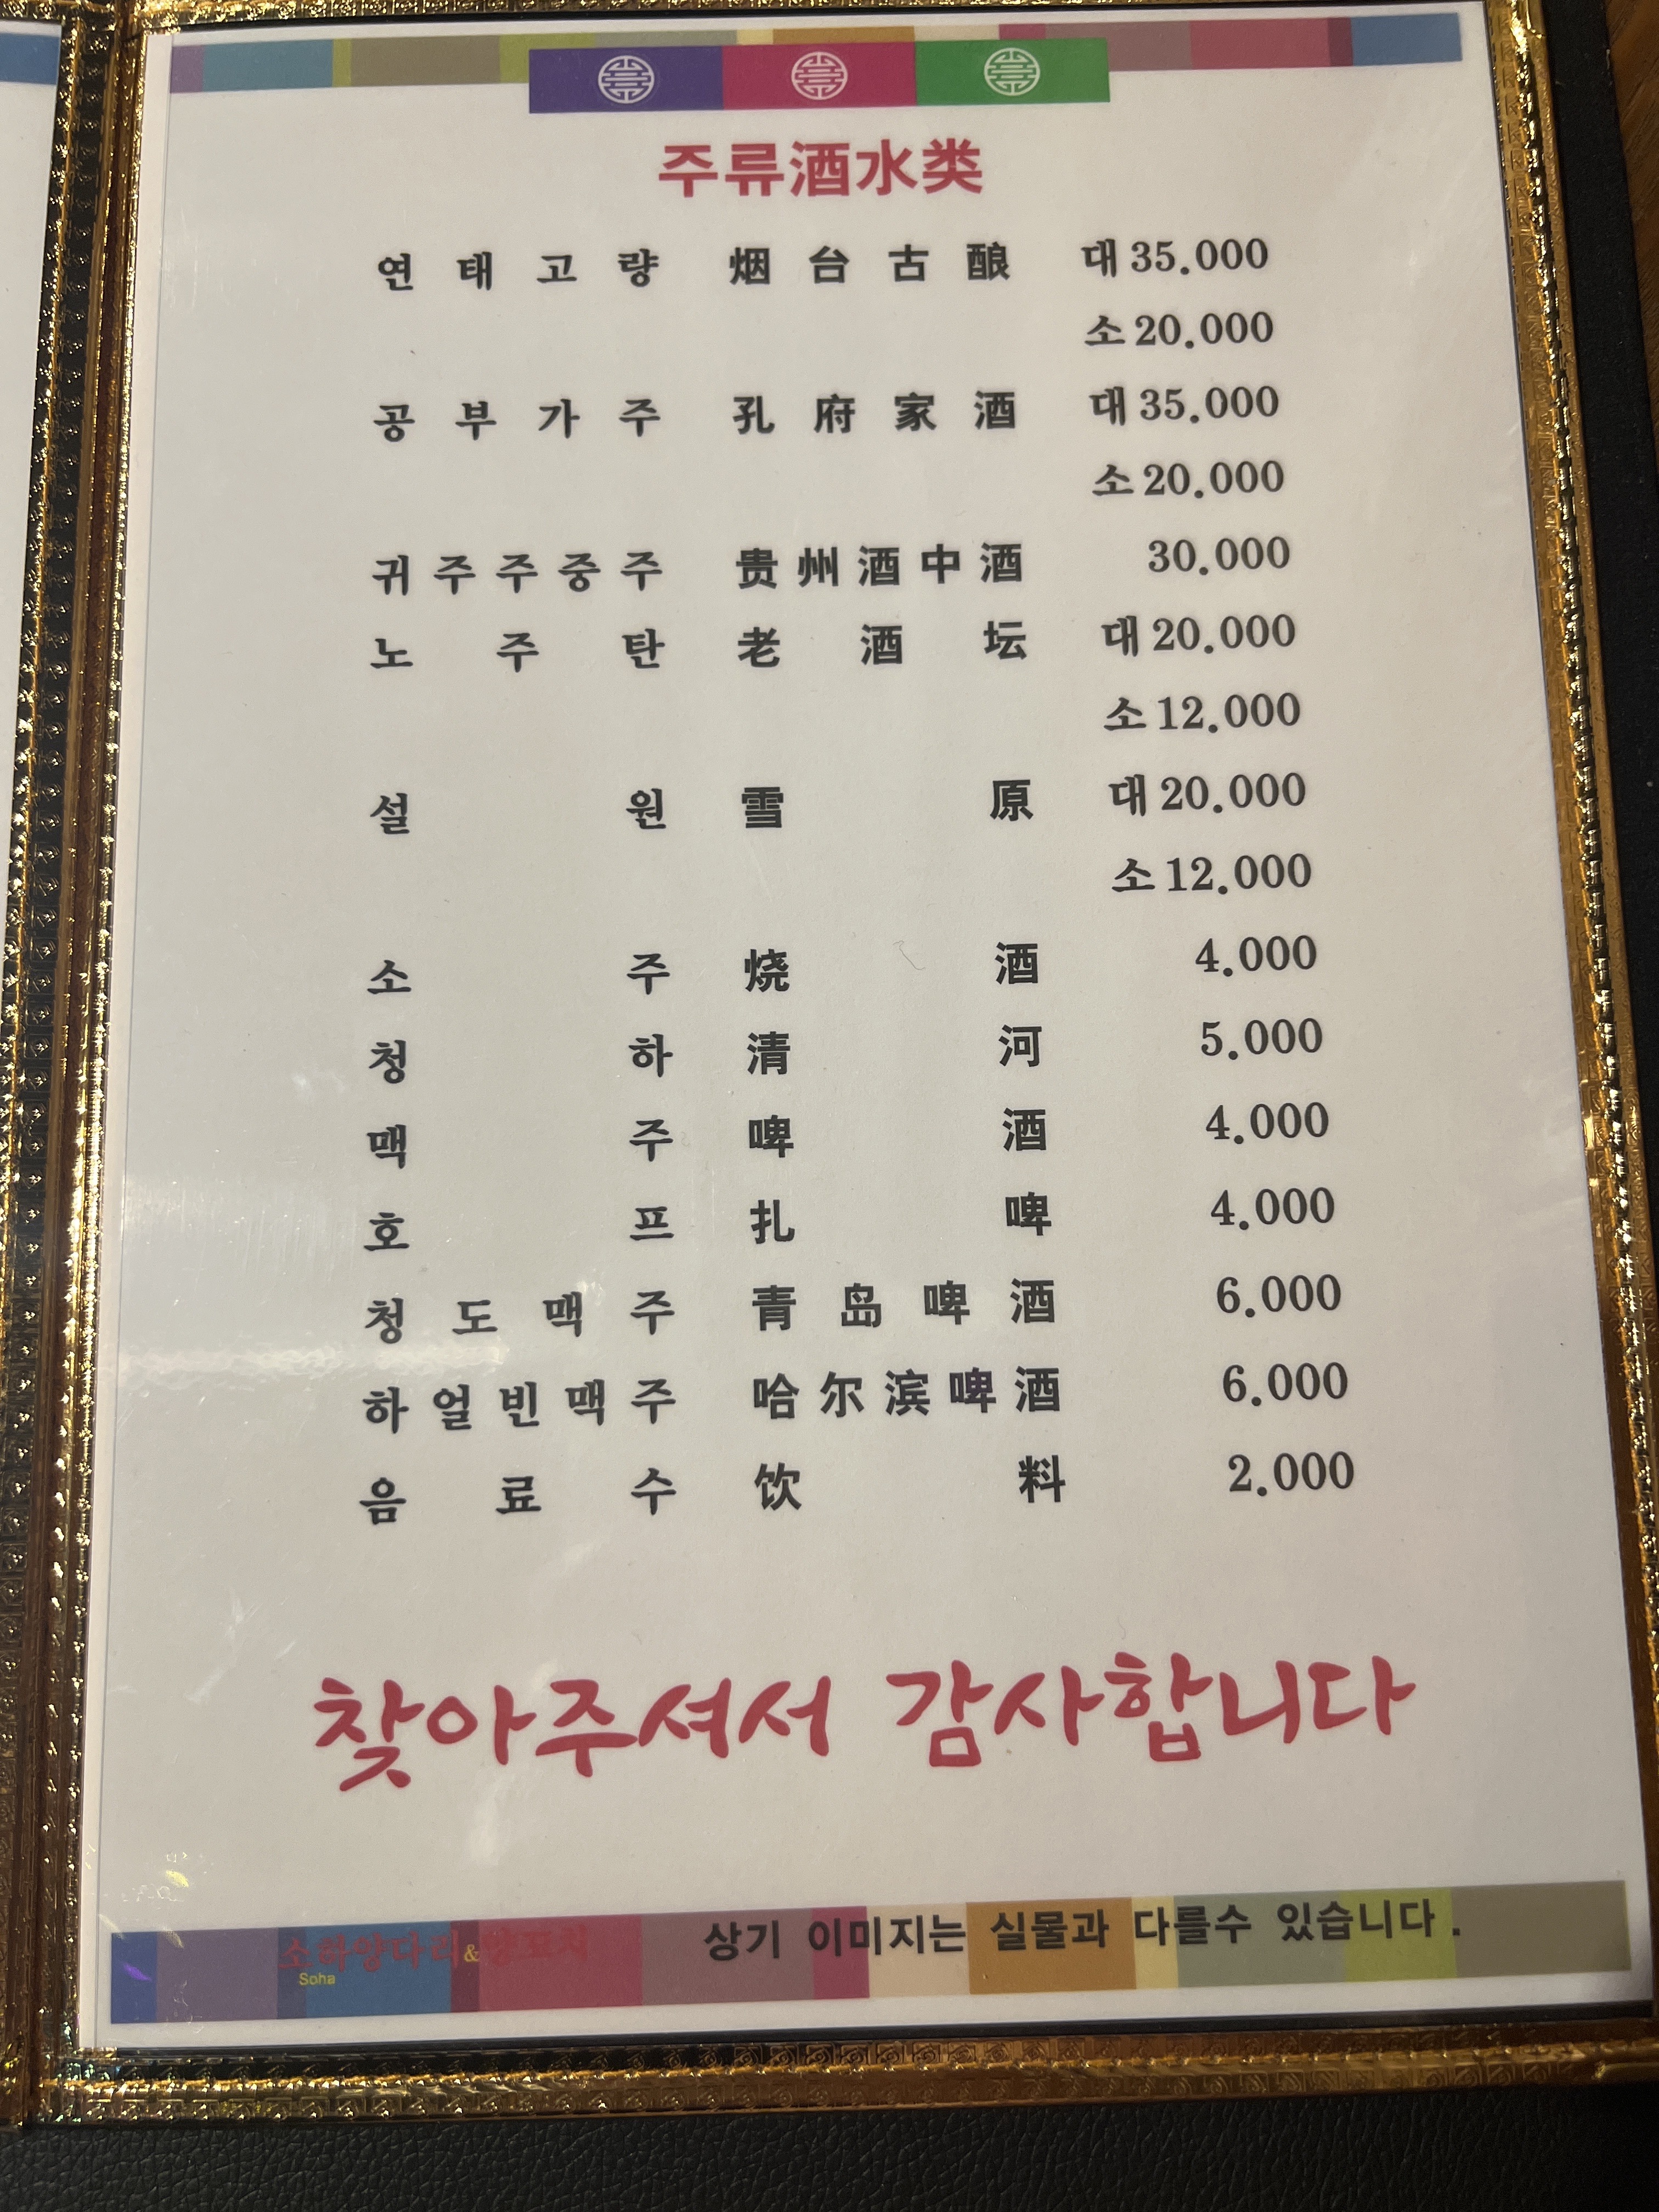 주류酒水类
연태고량 烟台古酿 대35.000
소20.000
공부가주 孔府家酒 대35.000
소20.000
귀주주중주 贵州酒中酒 30.000
노주탄 老酒坛 대20.000
소12.000
설원 雪原 대20.000
소12.000
소주 烧酒 4.000
청하 清河 5.000
맥주 啤酒 4.000
호프 扎啤 4.000
청도맥주 青岛啤酒 6.000
하얼빈맥주 哈尔滨啤酒 6.000
음료수 饮料 2.000
찾아주셔서 감사합니다
소하양다리& 상기 이미지는 실물과 다를수 있습니다.
Soha